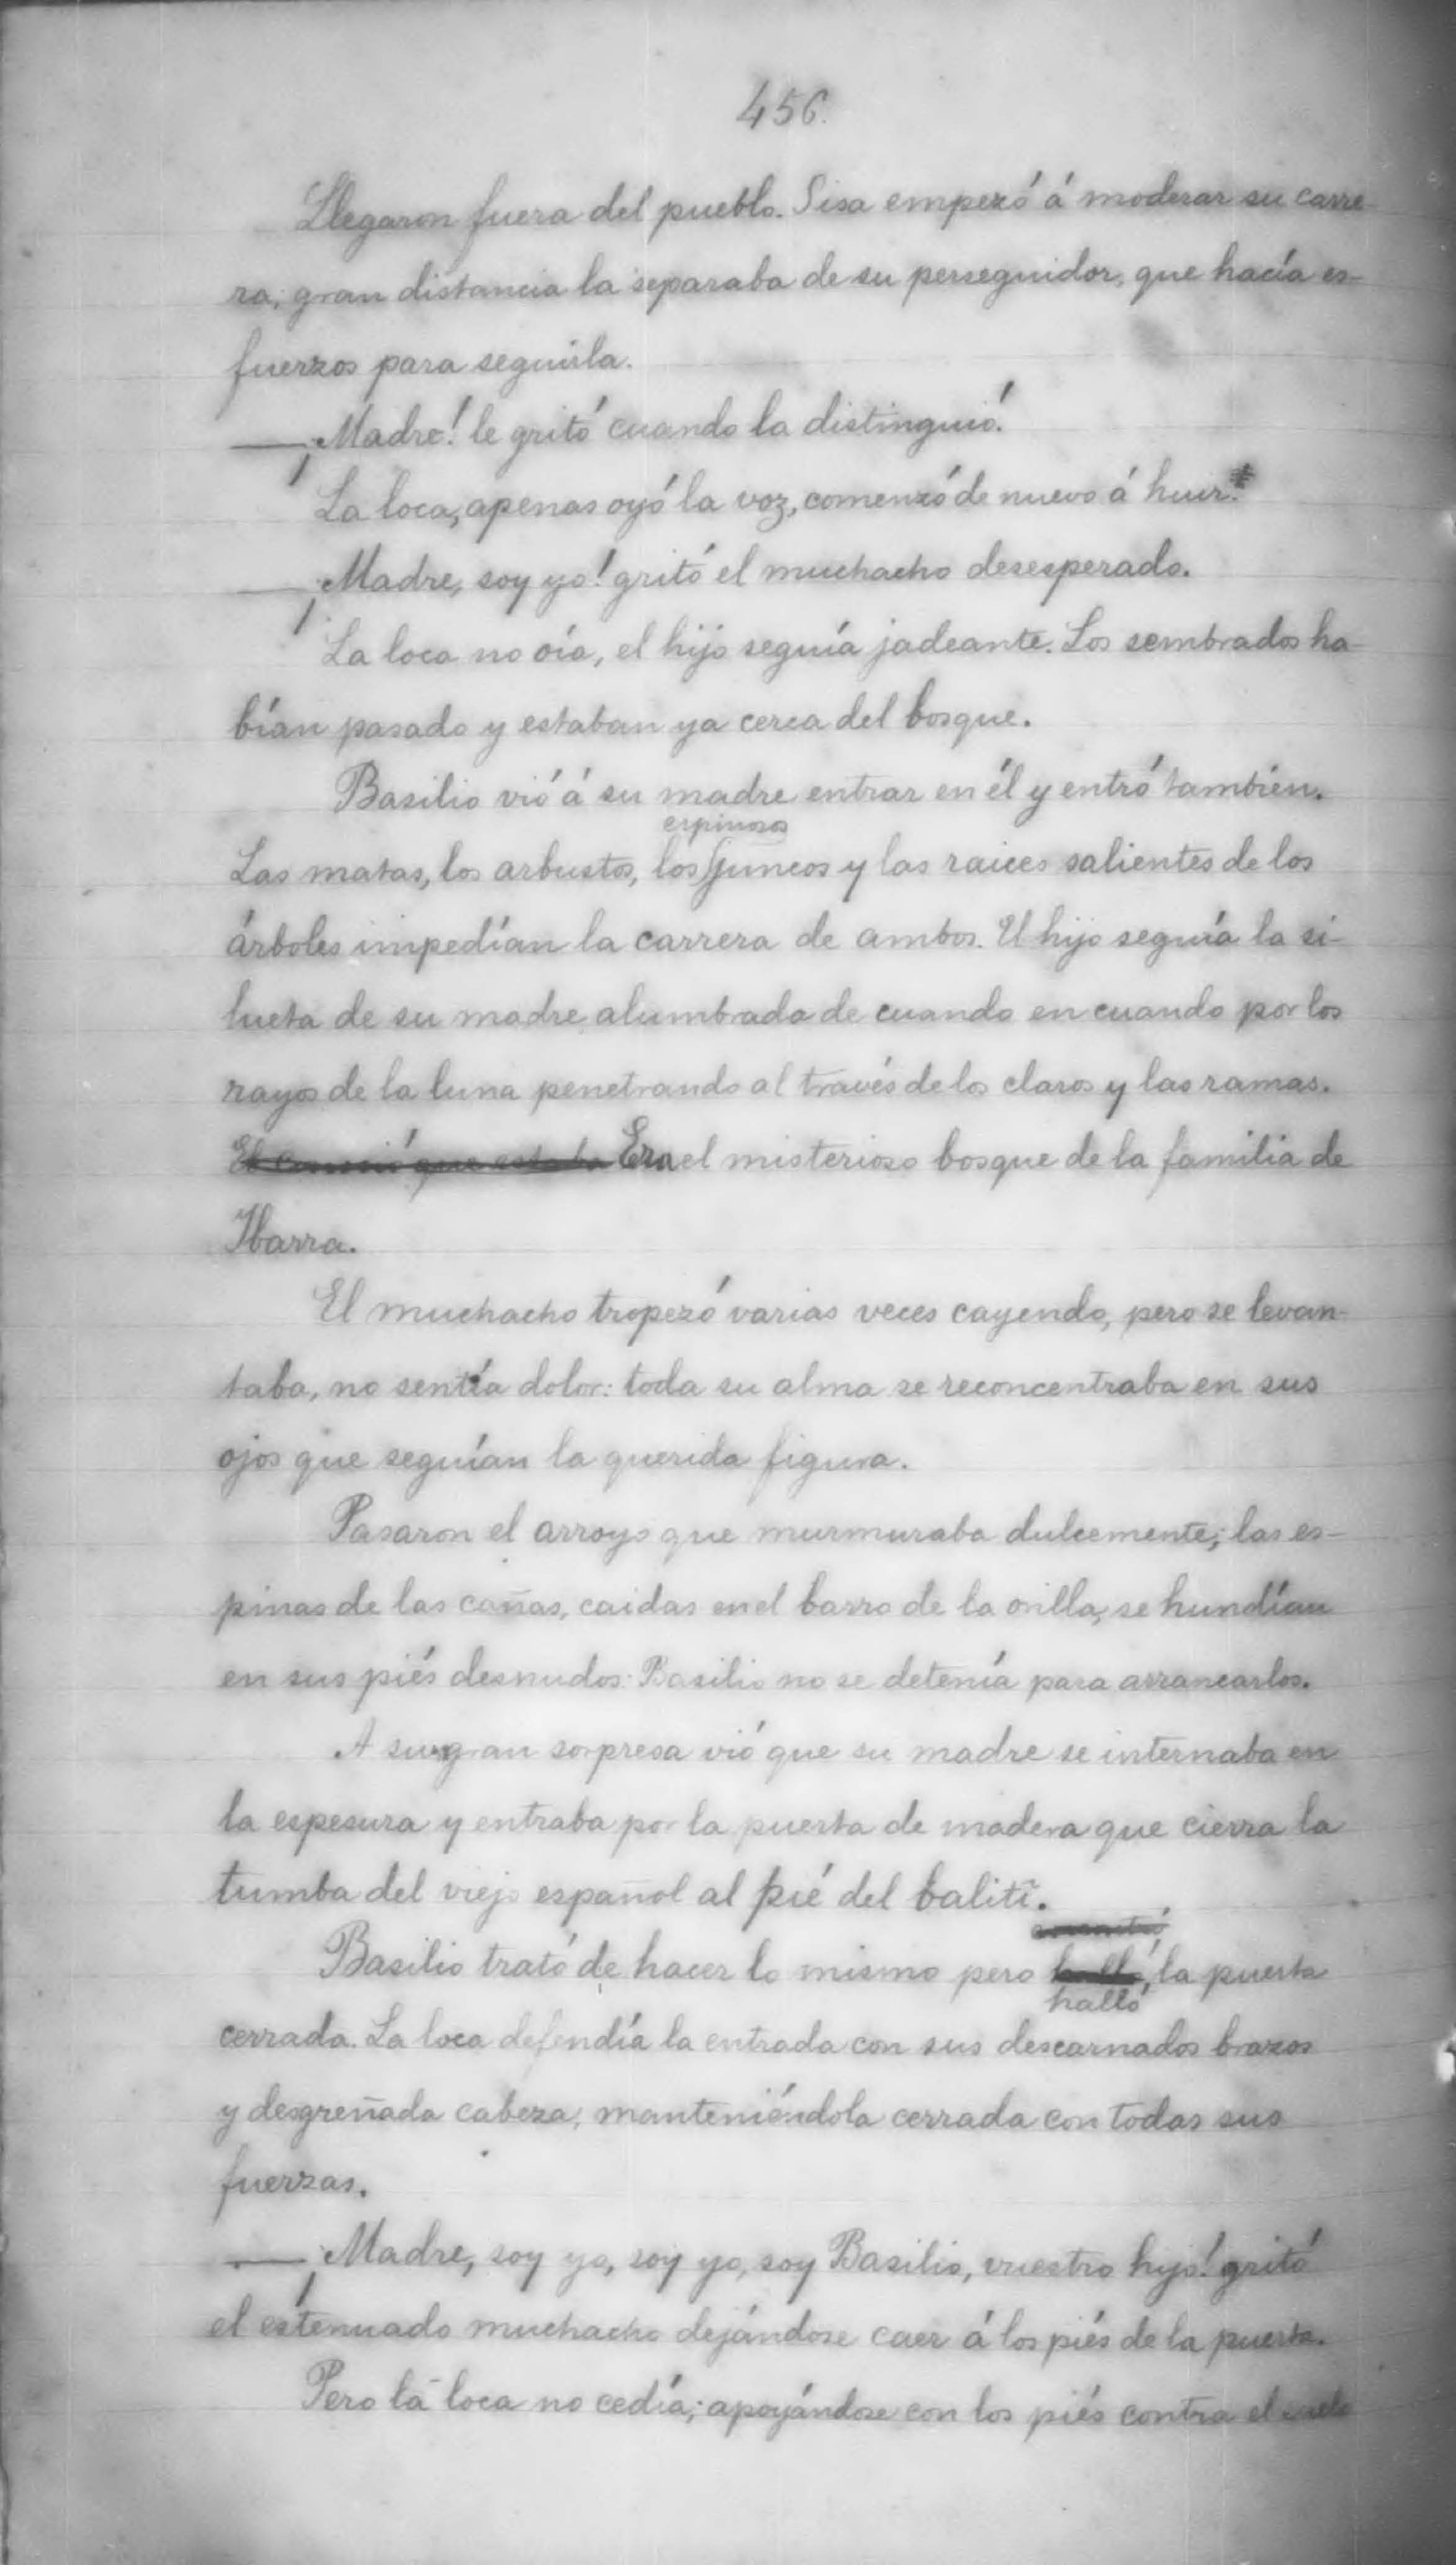 456.
Llegaron fuera del pueblo. Sisa empezó á moderar su carre-
ra; gran distancia la separaba de su perseguidor, que hacía es-
fuerzos para seguirla.
— ¡Madre! le gritó cuando la distinguió.
La loca, apenas oyó la voz, comenzó de nuevo á huir.
— ¡Madre, soy yo! gritó el muchacho desesperado.
La loca no oía, el hijo seguía jadeante. Los sembrados ha-
bían pasado y estaban ya cerca del bosque.
Basilio vió á su madre entrar en él y entró también.
espinosos
Las matas, los arbustos, los juncos y las raices salientes de los
árboles impedían la carrera de ambos. El hijo seguía la si-
lueta de su madre alumbrada de cuando en cuando por los
rayos de la luna penetrando al través de los claros y las ramas.
El conoció que estaba Era el misterioso bosque de la familia de
Ibarra.
El muchacho tropezó varias veces cayendo, pero se levan-
taba, no sentía dolor: toda su alma se reconcentraba en sus
ojos que seguían la querida figura.
Pasaron el arroyo que murmuraba dulcemente; las es-
pinas de las cañas, caidas en el barro de la orilla, se hundían
en sus piés desnudos: Basilio no se detenía para arrancarlos.
A su gran sorpresa vió que su madre se internaba en
la espesura y entraba por la puerta de madera que cierra la
tumba del viejo español al pié del balitî.
Basilio trató de hacer lo mismo pero halló, la puerta
halló
cerrada. La loca defendía la entrada con sus descarnados brazos
y desgreñada cabeza, manteniéndola cerrada con todas sus
fuerzas.
— ¡Madre, soy yo, soy yo, soy Basilio, vuestro hijo! gritó
el estenuado muchacho dejándose caer á los piés de la puerta.
Pero la loca no cedía; apoyándose con los piés contra el suelo